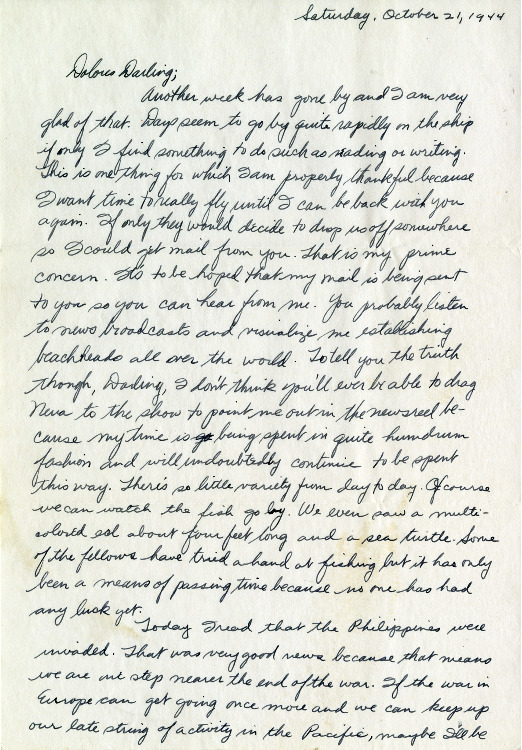 Saturday, October 21, 1944
Dolores Darling;
Another week has gone by and I am very
glad of that. Days seem to go by quite rapidly on the ship
if only I find something to do such as reading or writing.
This is one thing for which I am properly thankful because
I want time to really fly until I can be back with you
again. If only they would decide to drop us off somewhere
so I could get mail from you. That is my prime
concern. It's to be hoped that my mail is being sent
to you so you can hear from me. You probably listen
to news broadcasts and visualize me establishing
beachheads all over the world. To tell you the truth
though, Darling, I don't think you'll ever be able to drag
Neva to the show to point me out in the newsreel be-
cause my time is being spent in quite humdrum
fashion and will undoubtedly continue to be spent
this way. There's so little variety from day to day. Of course
we can watch the fish go by. We even saw a multi-
colored eel about four feet long and a sea turtle. Some
of the fellows have tried a hand at fishing but it has only
been a means of passing time because no one has had
any luck yet.
Today I read that the Philippines were
invaded. That was very good news because that means
we are one step nearer the end of the war. If the war in
Europe can get going once more and we can keep up
our late string of activity in the Pacific, maybe I'll be